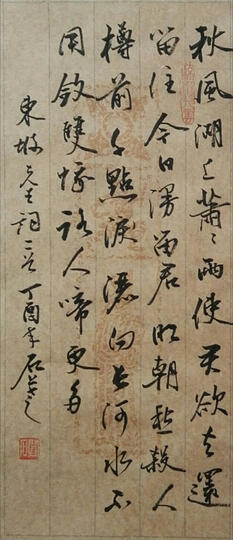 秋風湖上蕭〻雨使君欲去還
留住今日漫留君明朝愁殺人
樽前千點淚灑向長河水不
用斂雙蛾路人啼更多
東坡先生詞一首丁酉年石